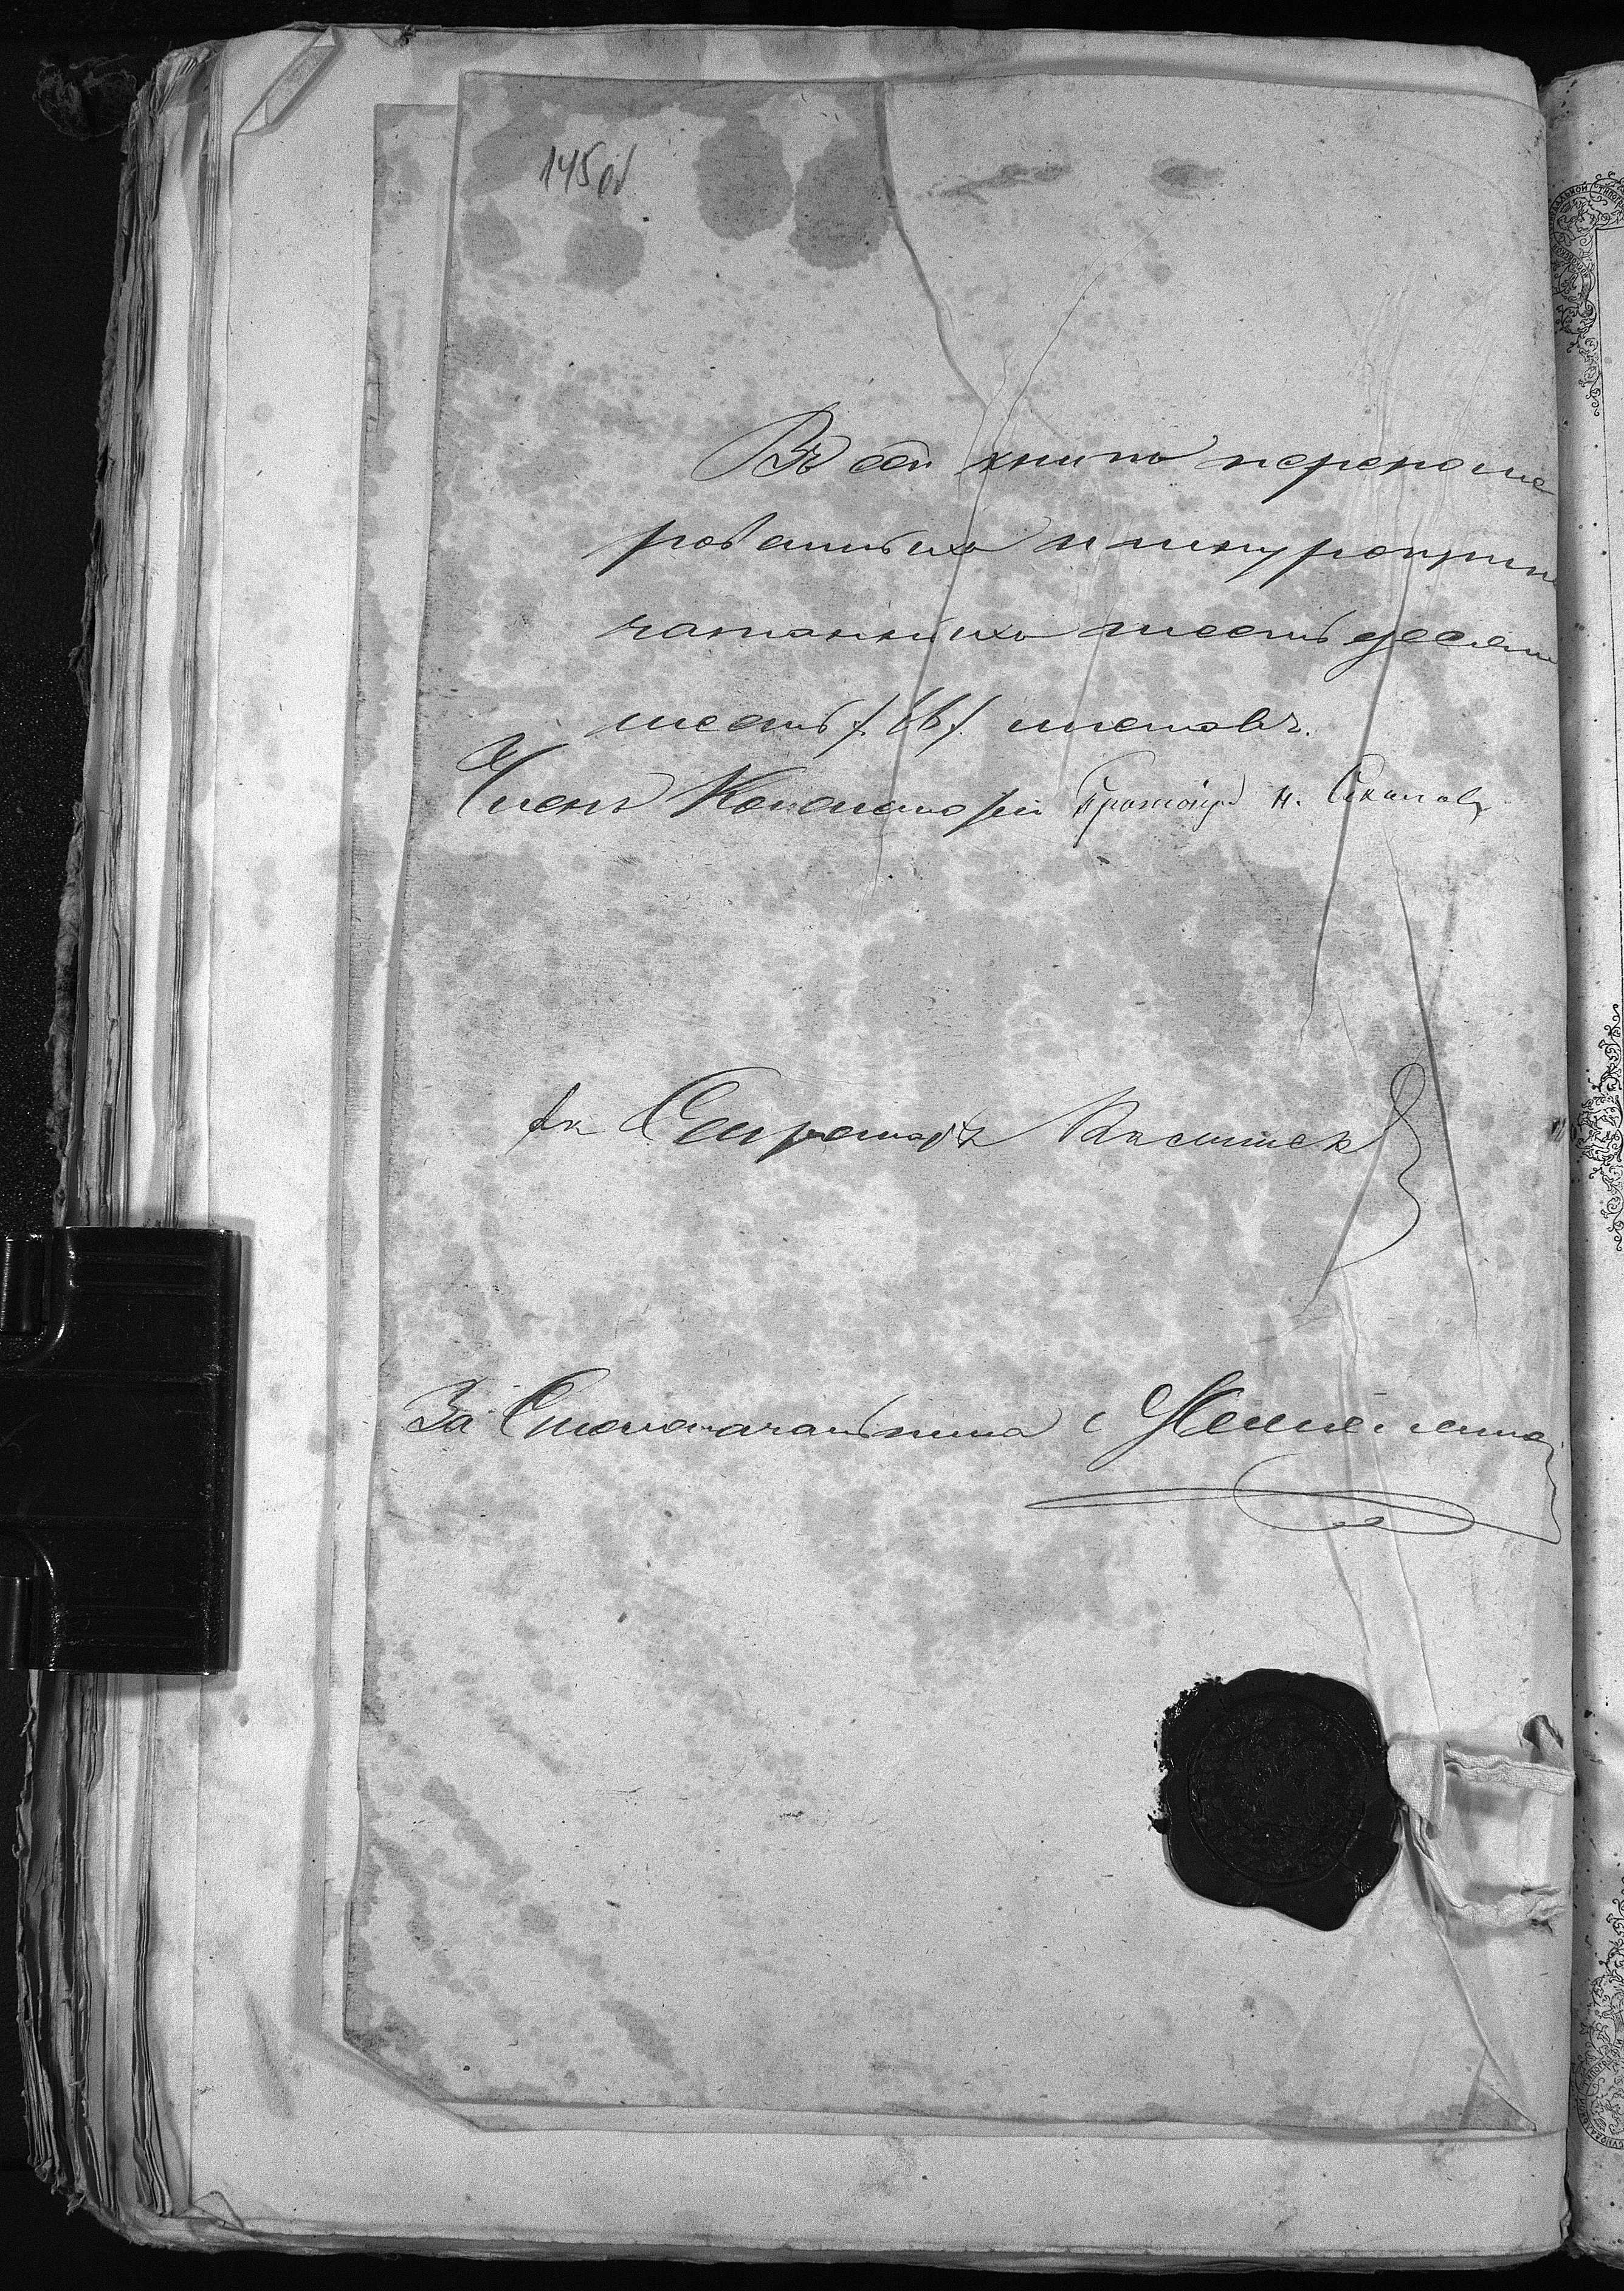 145об
Въ сей книгѣ перенуме
рованныхъ и шнуропри
чатанныхъ шестьдесят
шесть /.66/. листовъ.
Членъ Консисторіи Протоіерей Н. Соколовъ
Секретарь
За Столоначальника